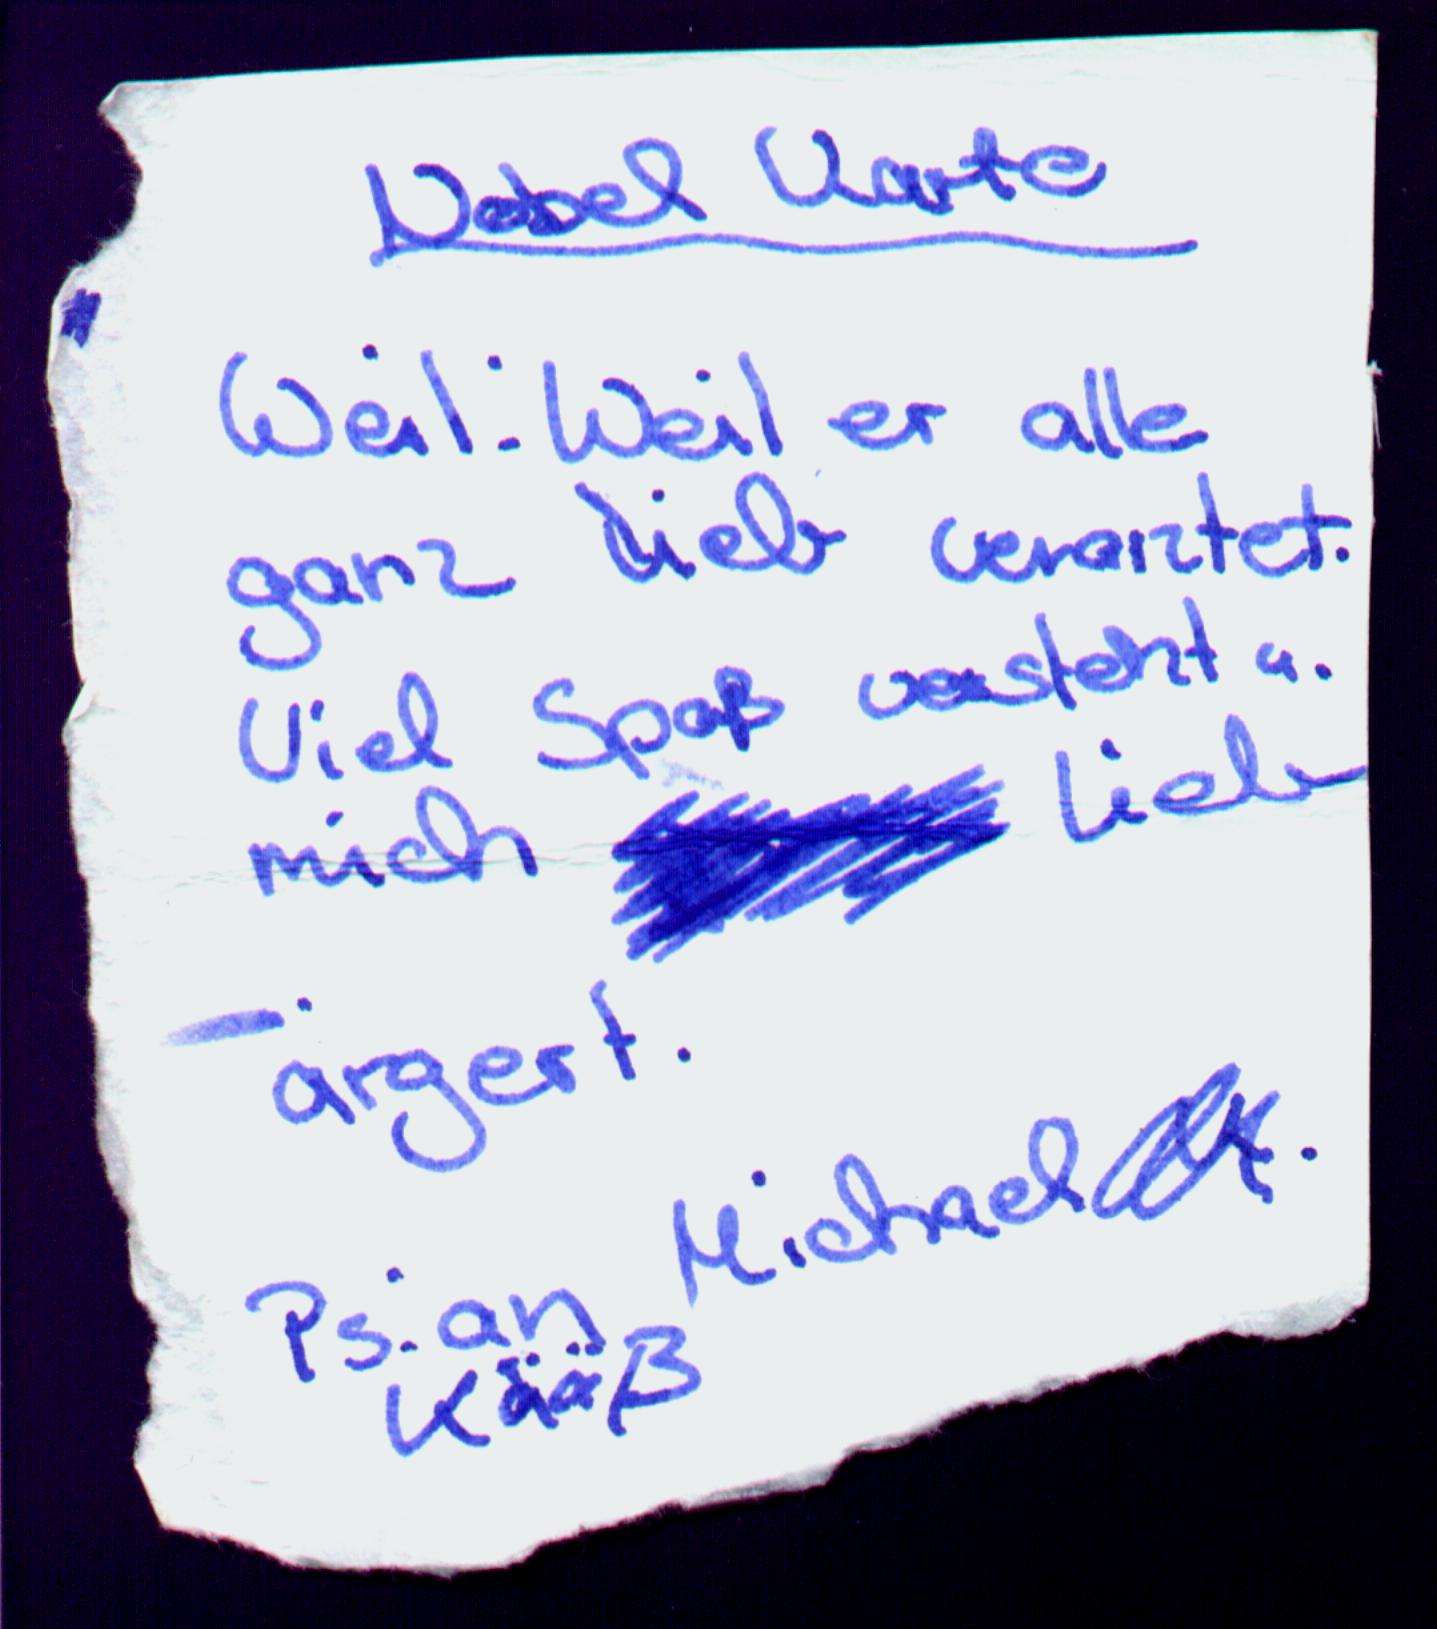 Nobel Karte
Weil: Weil er alle
ganz lieb verarztet.
Viel Spaß versteht u.
mich lieb
ärgert.
Michael K.
Ps: an
Kääß